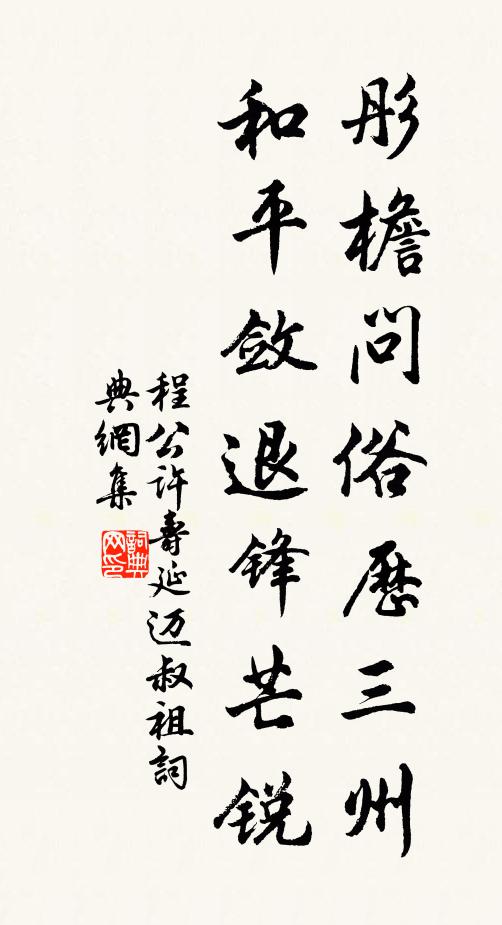 彤檐问俗歷三州
和平斂退锋芒锐
程公许壽延迈叔祖詞
典網集
詞典网印